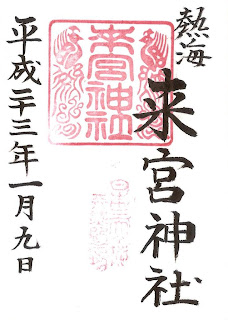 熱海
来宮神社
来宮神社
平成二十三年一月九日